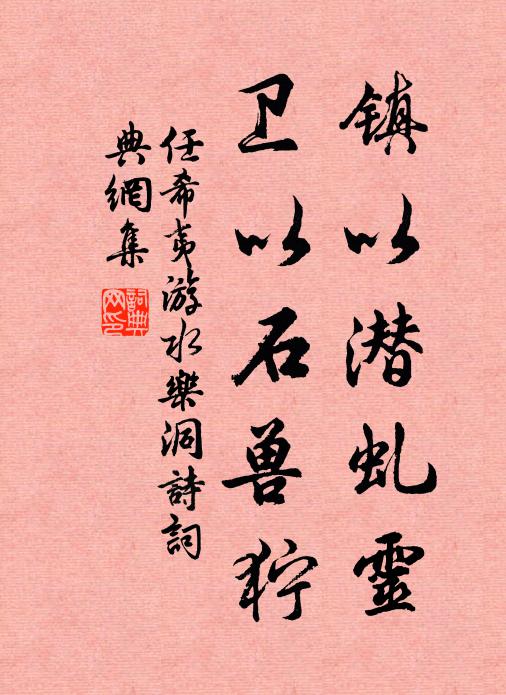 镇以潜虬靈
卫以石兽狞
任希夷游水樂洞詩詞
典網集
詞典網印